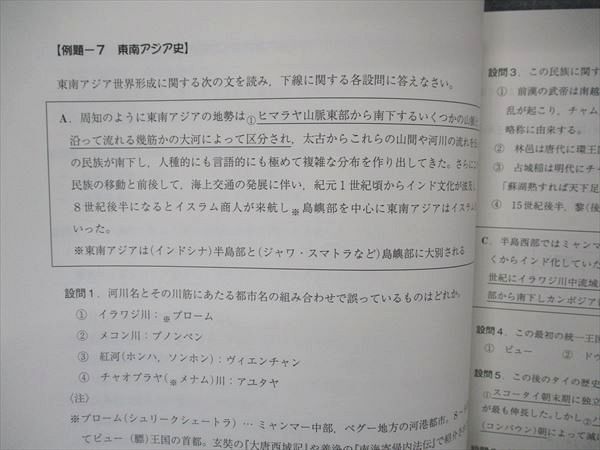 【例題－7 東南アジア史】
東南アジア世界形成に関する次の文を読み、下線に関する各設問に答えなさい。
A．周知のように東南アジアの地勢は①ヒマラヤ山脈東部から南下するいくつかの山脈と
沿って流れる幾筋かの大河によって区分され，太古からこれらの山間や河川の流れを伝
の民族が南下し，人種的にも言語的にも極めて複雑な分布を作り出してきた。さらにこ
民族の移動と前後して，海上交通の発展に伴い，紀元１世紀頃からインド文化が波及し
８世紀後半になるとイスラム商人が来航し※島嶼部を中心に東南アジアはイスラム
いった。
※東南アジアは(インドシナ)半島部と(ジャワ・スマトラなど)島嶼部に大別される
設問１．河川名とその川筋にあたる都市名の組み合わせで誤っているものはどれか。
① イラワジ川：※プローム
② メコン川：プノンペン
③ 紅河(ホンハ，ソンホン)：ヴィエンチャン
④ チャオプラヤ(※メナム)川：アユタヤ
〈注〉
※プローム(シュリークシェートラ) … ミャンマー中部，ペグー地方の河港都市，８－
てピュー（驃)王国の首都。玄奘の『大唐西域記』や義浄の『南海寄帰内法伝』で紹介さ
設問３．この民族に関す
① 前漢の武帝は南越
乱が起こり，チャム
略称に由来する。
② 林邑は唐代に環王国
③ 占城稲は明代にチャ
「蘇湖熟すれば天下足
④ 15世紀後半，黎(後
C．半島西部ではミャンマ
くからインド化していた
世紀にイラワジ川中流域
部から南下しカンボジア
設問４．この最初の統一王国
① ピュー ② ドヴ
設問５．この後のタイの歴史
①スコータイ朝末期に独立
が最も伸長した。しかし②
(コンバウン)朝によって滅